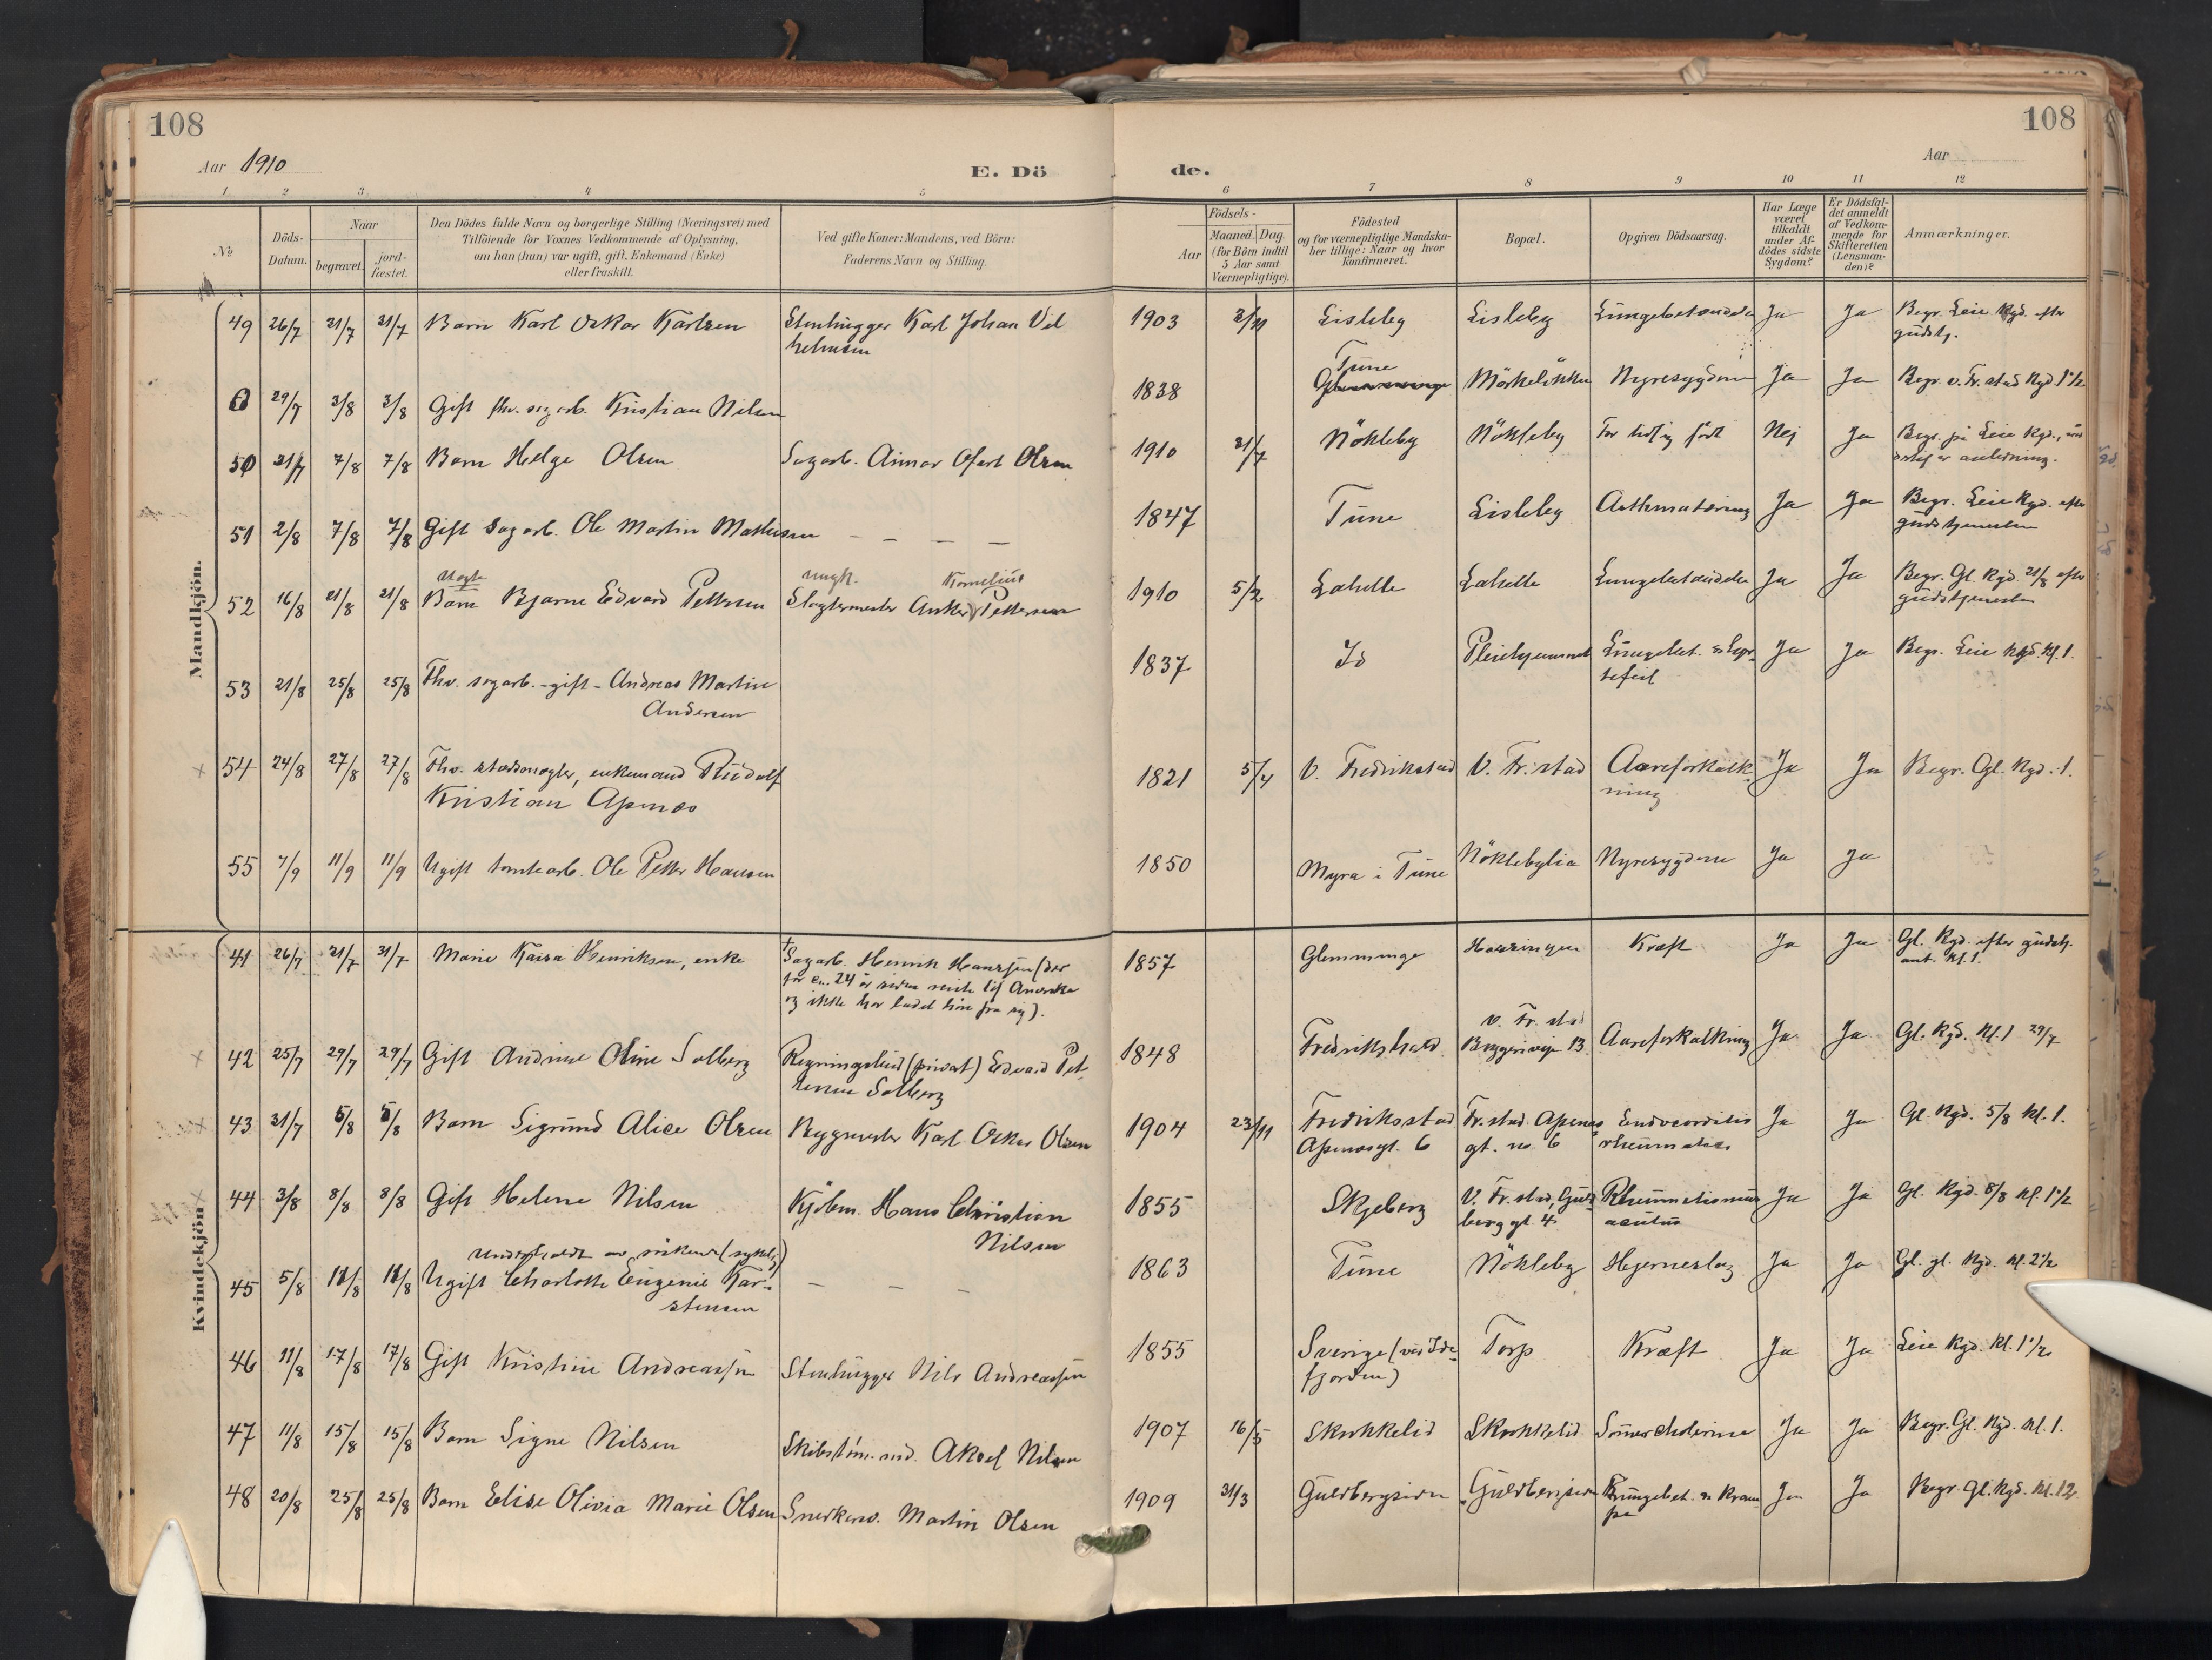 108
108
Aar 1910
E. Dö
de.
Aar
1 2 3 4 5 6 7 8 9 10 11 12
No
Döds-
Datum.
Naar
begravet.
jord-
fæstet.
Den Dödes fulde Navn og borgerlige Stilling (Næringsvei) med
Tilföiende for Voxnes Vedkommende af Oplysning,
om han (hun) var ugift, gift, Enkemand (Enke)
eller fraskilt.
Ved gifte Koner: Mandens, ved Börn:
Faderens Navn og Stilling.
Födsels-
Aar
Maaned. Dag.
(for Börn indtil
5 Aar samt
Værnepligtige).
Födested
og for værnepligtige Mandska-
ber tillige: Naar og hvor
konfirmeret.
Bopæl.
Opgiven Dödsaarsag.
Har Læge
været
tilkaldt
under Af-
dödes sidste
Sygdom?
Er Dödsfal-
det anmeldt
af Vedkom-
mende for
Skifteretten
(Lensman-
den)?
Anmærkninger.
Mandkjön.
49 26/7 31/7 31/7 Barn Karl Oskar Karlsen Stenhugger Karl Johan Vil 1903 2/11 Lisleby Lisleby Lungebetændelse Ja Ja Begr. Leie Kgd. efter
helmsen gudstj.
Tune
29/7 3/8 3/8 Gift fhv. sagarb. Kristian Nilsen 1838 Glemminge Mörkelökken Nyresygdom Ja Ja Begr. v. Fr.stad Kgd 1 1/2
50 31/7 7/8 7/8 Barn Helge Olsen Sagarb. Olsen 1910 31/7 Nökleby Nökleby For tidlig födt Nej Ja Begr. på Leie Kgd.,
anledning.
51 2/8 7/8 7/8 Gift Sagarb. Ole Martin Mathisen — — — — 1847 Tune Lisleby Ja Ja Begr. Leie Kgd. efter
gudstjenesten
Uegte ungk. Kornelius
52 16/8 21/8 21/8 Barn Bjarne Edvard Pettersen Slagtermester Anker Pettersen 1910 5/2 Labelle Lahelle Lungebetændelse Ja Ja Begr. Gl. Kgd. 21/8 efter
gudstjenesten
53 21/8 25/8 25/8 Fhv. sagarb. - gift - Andreas Martin 1837 Id Pleiehjemmet Lungebet. Ja Ja Begr. Leie Kgd. Kl. 1.
Andersen
54 24/8 27/8 27/8 Fhv. stadsmægler, enkemand Rudolf 1821 5/4 V. Fredrikstad V. Fr.stad Aareforkalk- Ja Ja Begr. Gl. Kgd. 1.
Kristian Apenæs ning
55 7/9 11/9 11/9 Ugift tomtearb. Ole Petter Hansen 1850 Myra i Tune Nöklebylia Nyresygdom Ja Ja
Kvindekjön
41 26/7 31/7 31/7 Marie Kaisa Henriksen, enke Sagarb. Henrik Hanssen (der 1857 Glemminge Kræft Ja Ja Gl. Kgd. efter gudstj.
for ca. 24 år siden reiste til Amerika ant. Kl. 1.
og ikke har ladet höre fra sig).
42 25/7 29/7 29/7 Gift Andrine Oline Solberg Regningsbud (privat) Edvard Pet- 1848 Fredrikshald V. Fr. stad Aareforkalkning Ja Ja Gl. Kgd. Kl. 1 29/7
tersen Solberg Bryggeriveje 13
43 31/7 5/8 5/8 Barn Sigrund Alice Olsen Bygmester Karl Oskar Olsen 1904 23/11 Fredriksstad Fr.stad Apenæs Endocarditis Ja Ja Gl. Kgd. 5/8 Kl. 1.
Apenæsgt. 6 gt. no. 6
44 3/8 8/8 8/8 Gift Helene Nilsen Kjöbm. Hans Christian 1855 Skjeberg V. Fr.stad, Guld- Rheumatismus Ja Ja Gl. Kgd. 8/8 Kl. 1 1/2
Nilsen berggt. 4 acutus
45 5/8 11/8 11/8 Ugift Charlotte Eugenie Kar- — — — 1863 Tune Nökleby Hjerneslag Ja Ja Gl. gl. Kgd. Kl. 2 1/2
stensen
46 11/8 17/8 17/8 Gift Kristine Andreassen Stenhugger Nils Andreassen 1855 Sverige (ved Ide- Torp Kræft Ja Ja Leie Kgd. Kl. 1 1/2
fjorden)
47 11/8 15/8 15/8 Barn Signe Nilsen Skibstöm. Aksel Nilsen 1907 16/5 Skokkelid Skokkelid Ja Ja Begr. Gl. Kgd. Kl. 1.
48 20/8 25/8 25/8 Barn Elise Olivia Marie Olsen Snerkersv. Martin Olsen 1909 31/3 Guldbergsiden Guldbergsiden Ja Ja Begr. Gl. Kgd. Kl. 12.